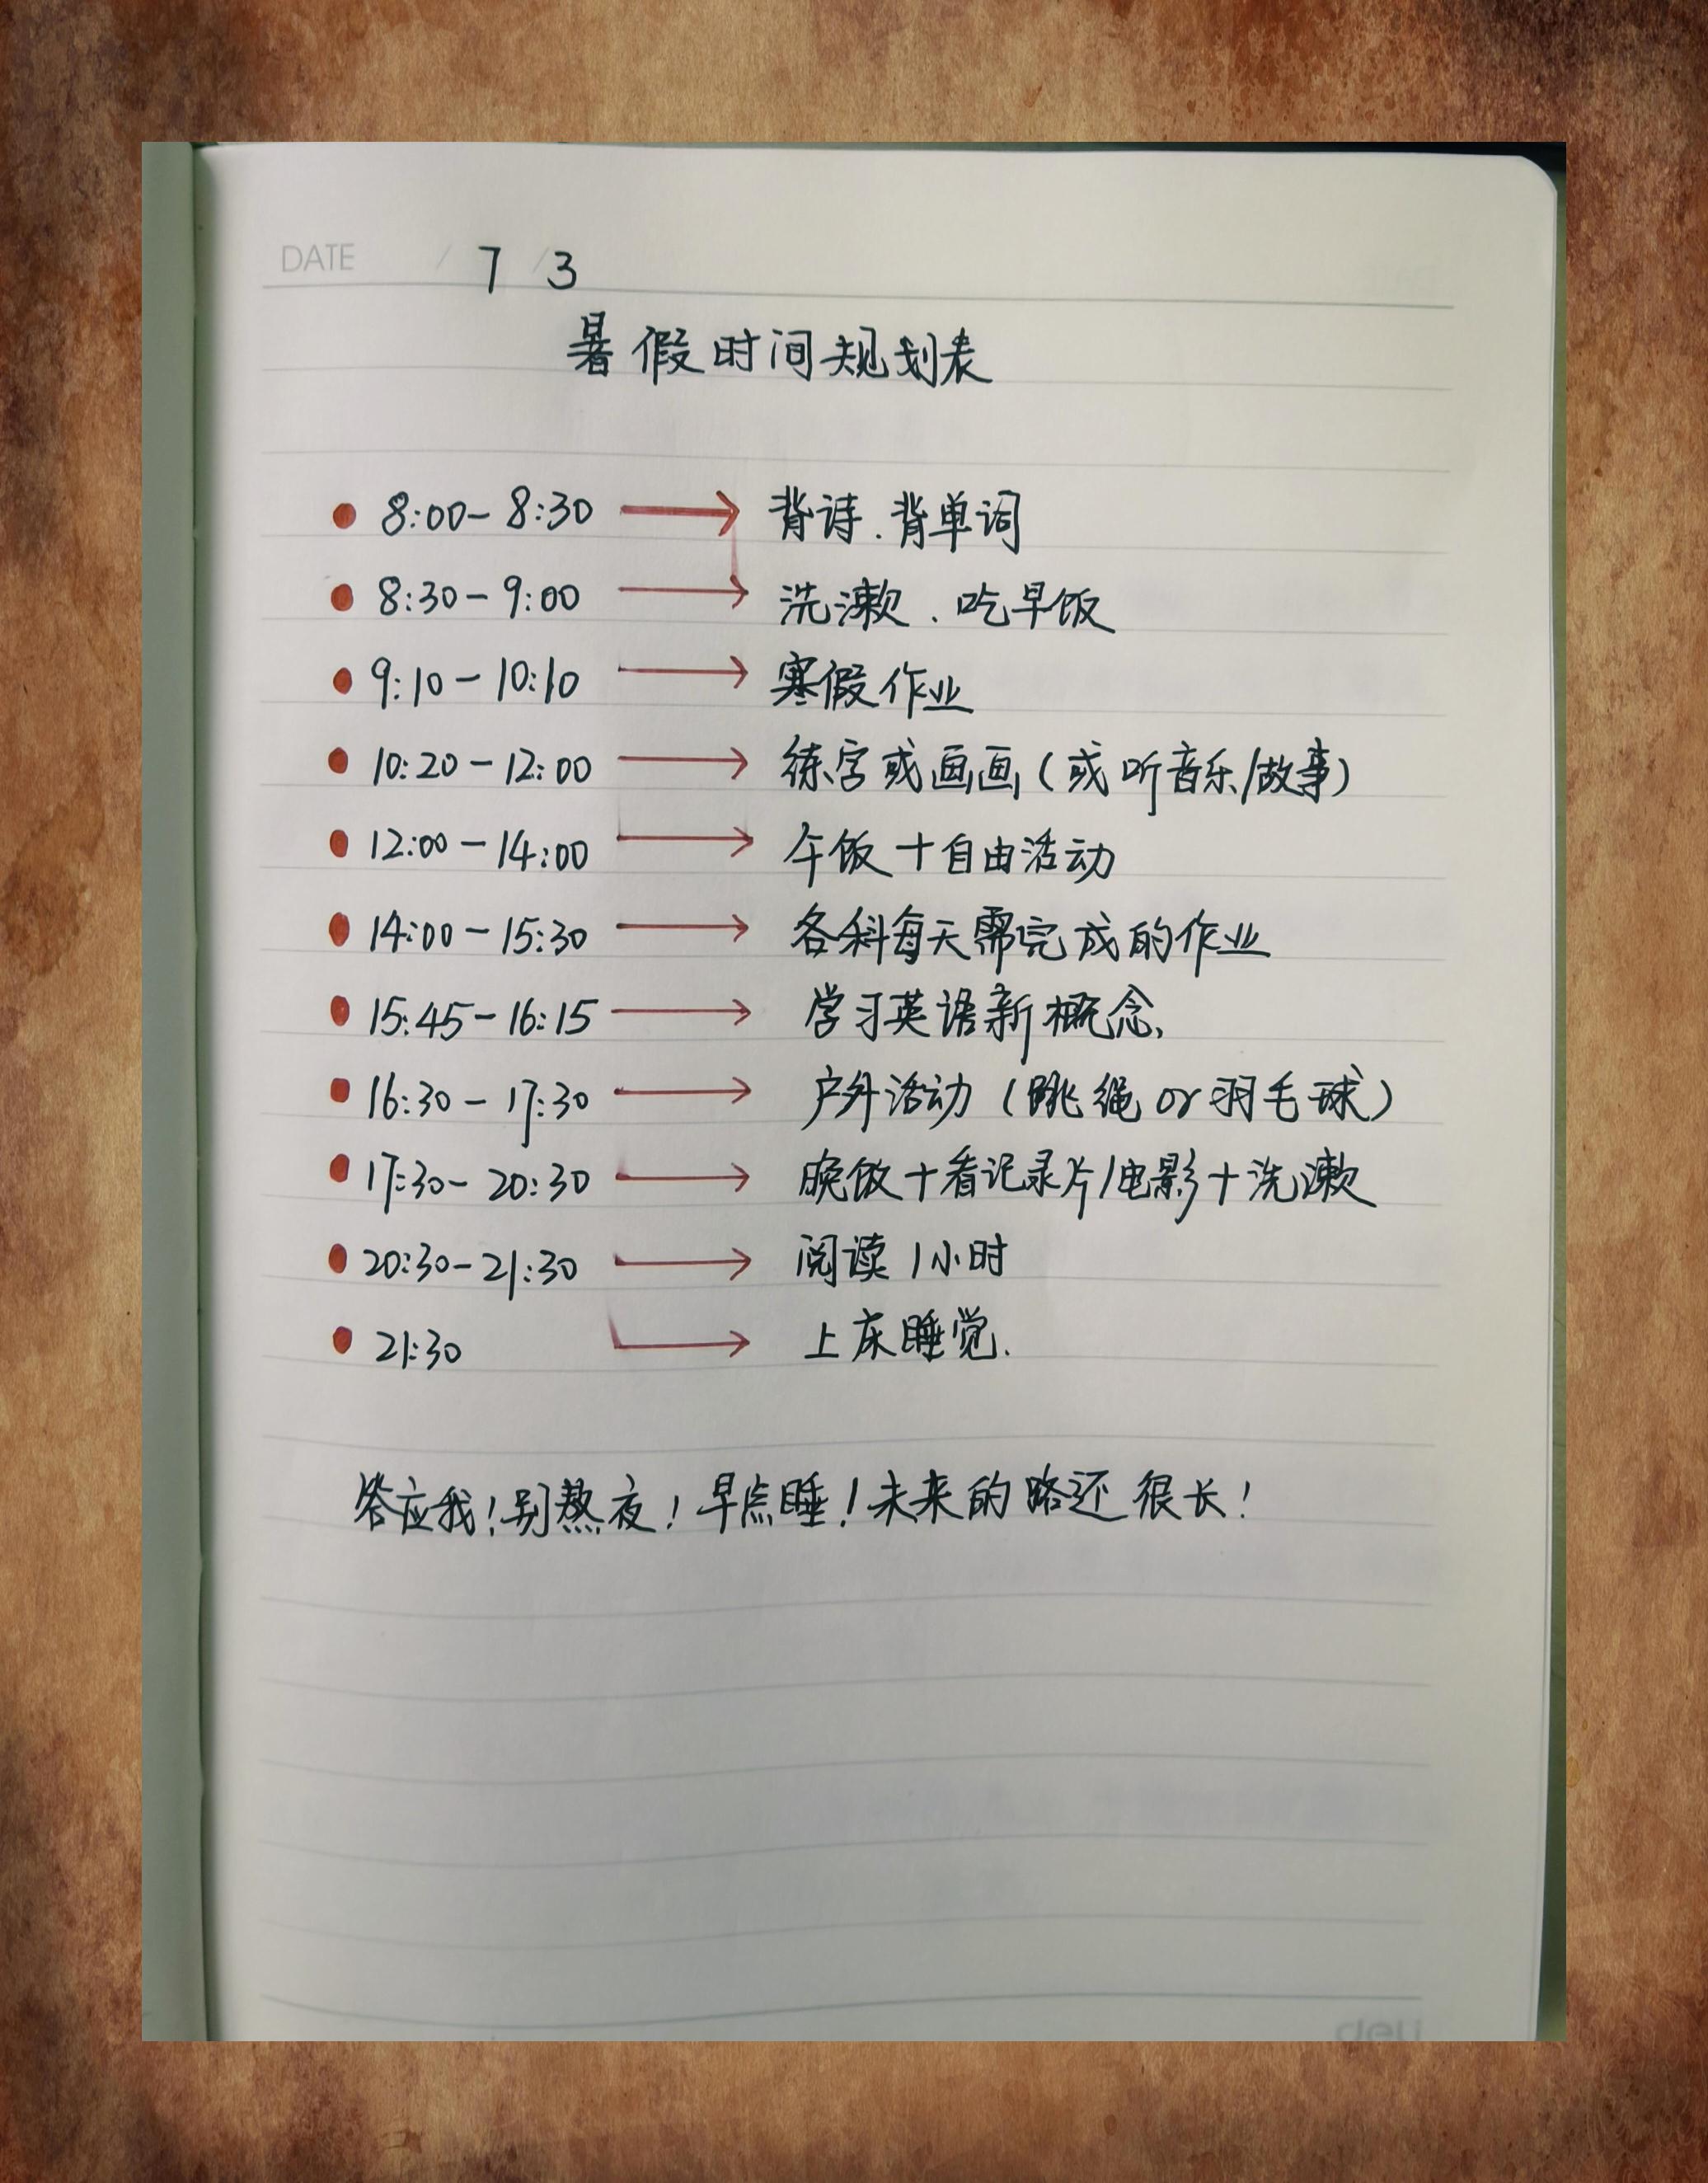 DATE / 7 / 3
暑假时间规划表
8:00-8:30 → 背诗.背单词
8:30-9:00 → 洗漱.吃早饭
9:10-10:10 → 寒假作业
10:20-12:00 → 练字或画画(或听音乐/故事)
12:00-14:00 → 午饭+自由活动
14:00-15:30 → 各科每天需完成的作业
15:45-16:15 → 学习英语新概念、
16:30-17:30 → 户外活动(跳绳or羽毛球)
17:30-20:30 → 晚饭+看记录片/电影+洗漱
20:30-21:30 → 阅读1小时
21:30 → 上床睡觉.
答应我!别熬夜!早点睡!未来的路还很长!
deli